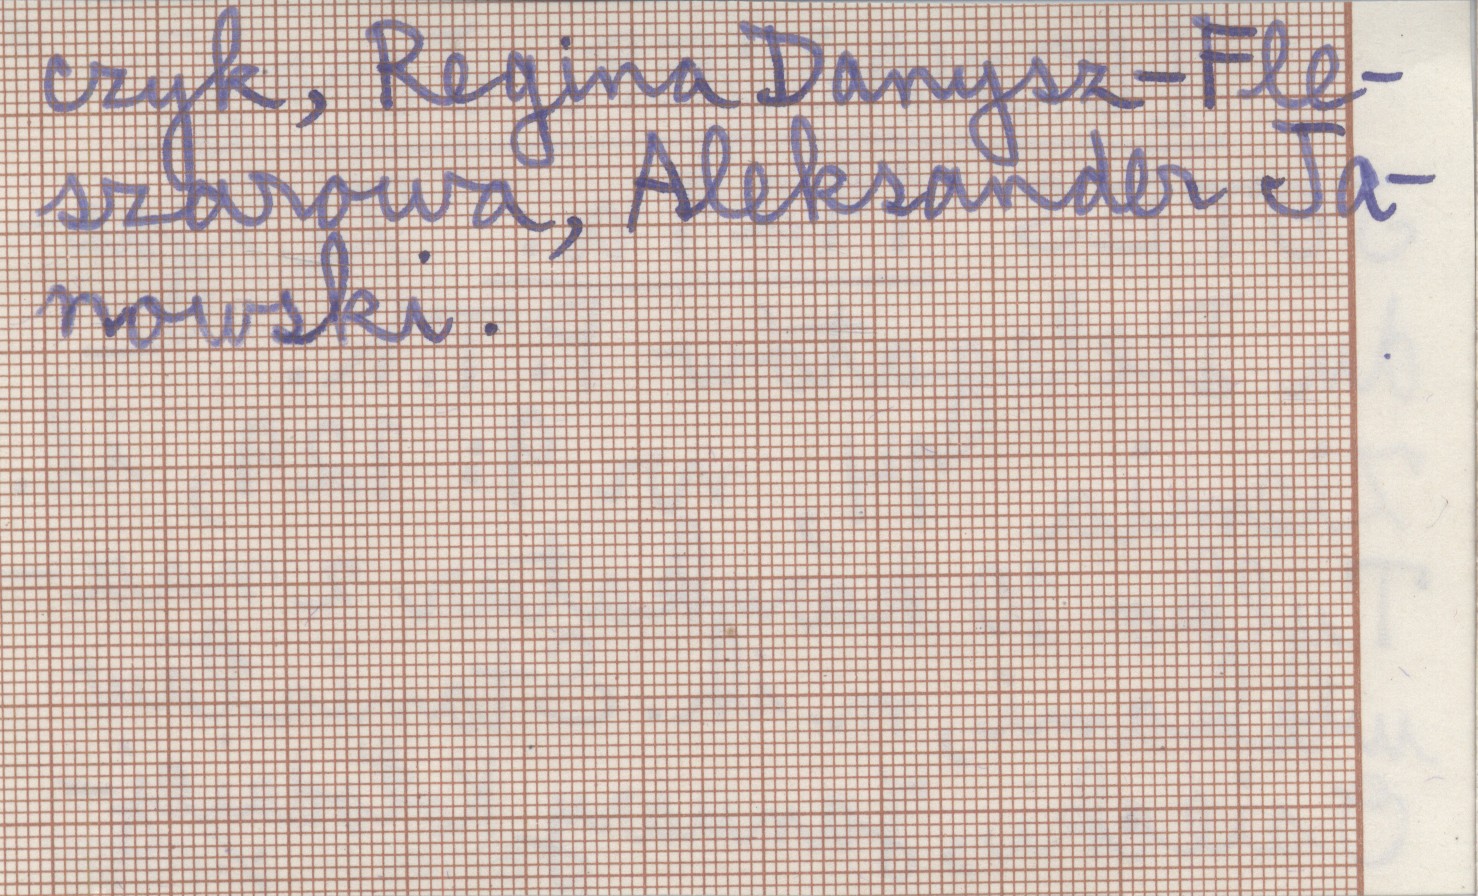 czyk, Regina Danysz-Fle-
szarowa, Aleksander Ja-
nowski.